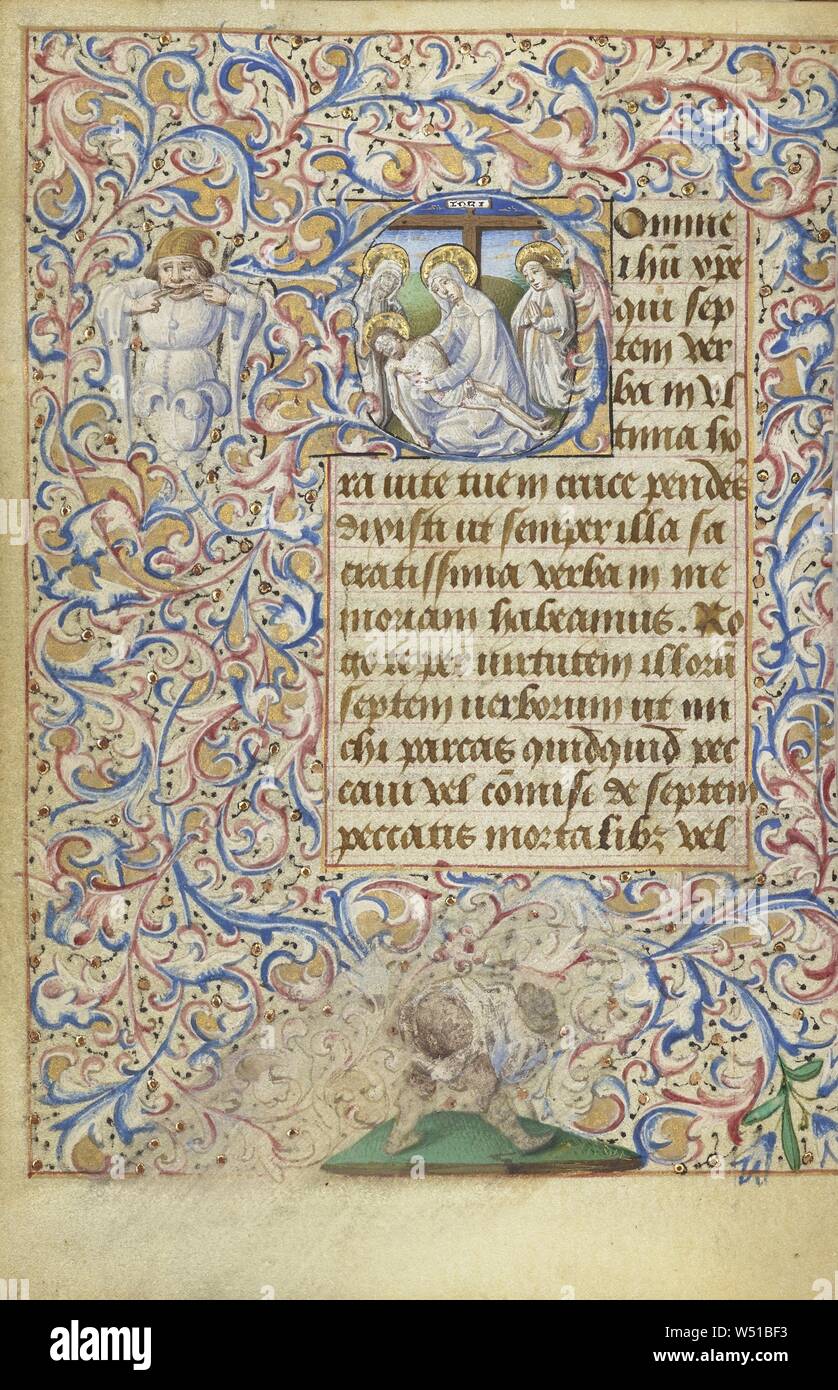 IORI
Omine
ihū xp̄e
qui sep
tem ver
ba in vl
tima ho
ra uite tue in cruce pendēs
dixisti ut semper illa sa
cratissima verba in me
moriam habeamus. Ro
go te per uirtutem illorū
septem uerborum ut mi
chi parcas quidquid pec
caui vel cōmisi de septem
peccatis mortalibz vel
alamy
Image ID: W51BF3
www.alamy.com